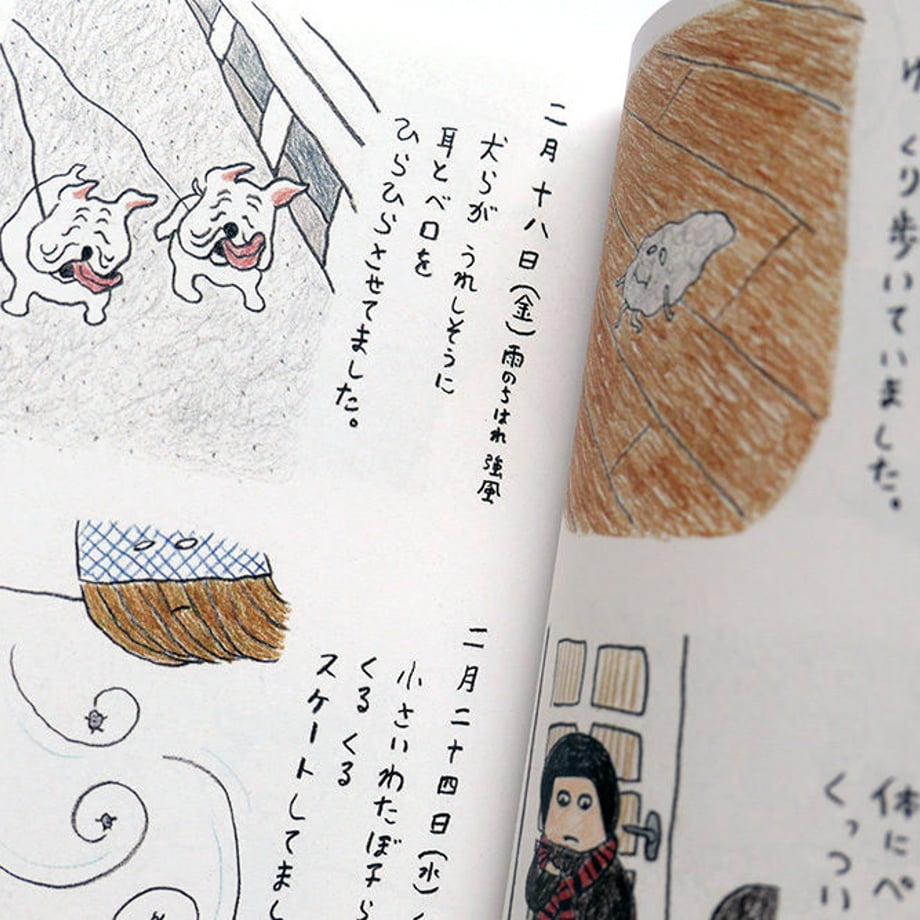 ゆっくり歩いていました。
体にペ
くっつい
二月十八日(金)雨のちはれ 強風
犬らが うれしそうに
耳とベロを
ひらひらさせてました。
二月二十四日(水)
小さいわたぼ子ら
くるくる
スケートしてまし